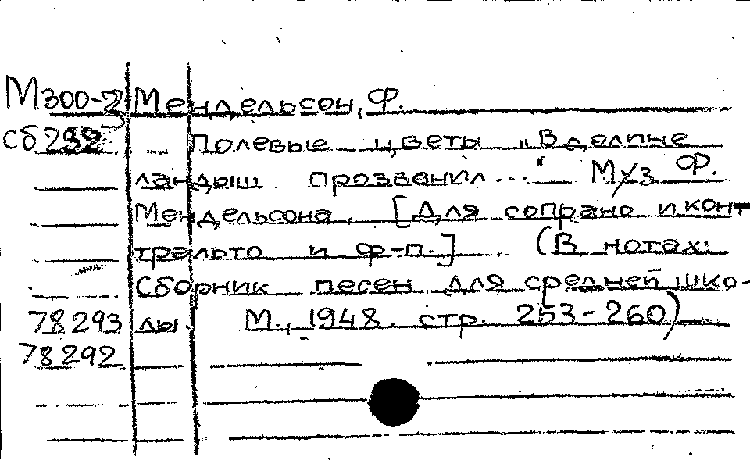 М300-2 Мендельсон, Ф.
Сб232 Полевые цветы „В долине
ландыш прозвенил..." Муз Ф.
Мендельсона. [Для сопрано и конт
тральто и ф-п.] (В нотах:
Сборник песен для средней шко-
78293 лы. М., 1948. стр. 253-260)
78292